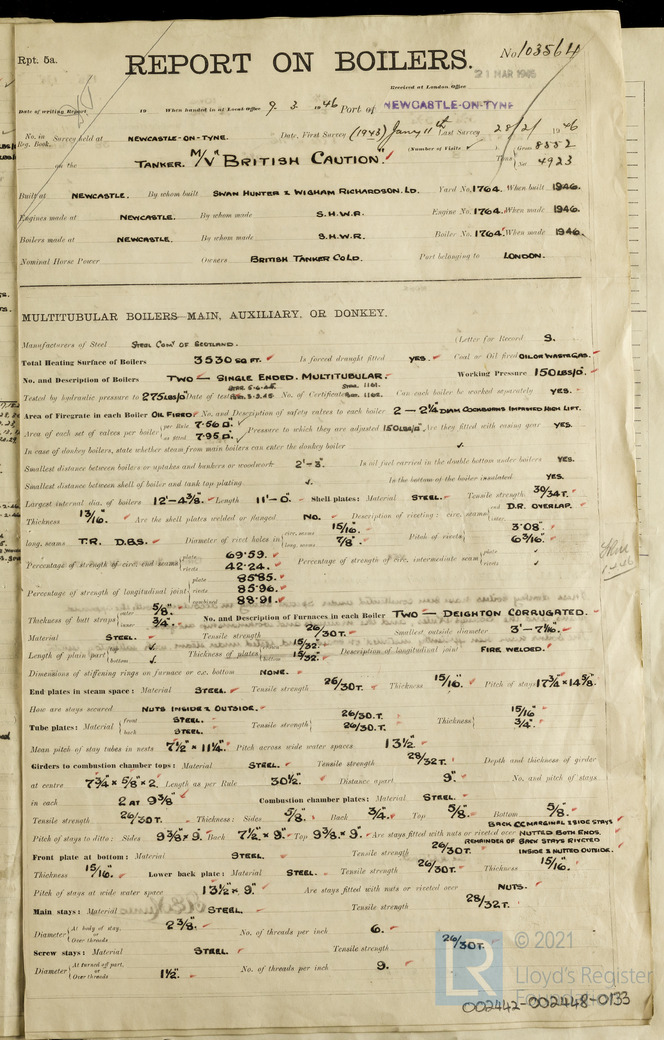 Rpt. 5a.
REPORT ON BOILERS.
No. 103564
21 MAR 1946
Received at London Office
Date of writing Report 19 When handed in at Local Office 9. 3. 1946 Port of NEWCASTLE-ON-TYNE
No. in Reg. Book. Survey held at NEWCASTLE-ON-TYNE. Date, First Survey (1943) Jany 11th Last Survey 28/2/ 1946
(Number of Visits )
on the TANKER. M/V "BRITISH CAUTION." Tons Gross 8552 Net 4923
Built at NEWCASTLE. By whom built SWAN HUNTER & WIGHAM RICHARDSON. LD. Yard No. 1764. When built 1946.
Engines made at NEWCASTLE. By whom made S.H.W.R. Engine No. 1764. When made 1946.
Boilers made at NEWCASTLE. By whom made S.H.W.R. Boiler No. 1764. When made 1946.
Nominal Horse Power Owners BRITISH TANKER CO LD. Port belonging to LONDON.
MULTITUBULAR BOILERS—MAIN, AUXILIARY, OR DONKEY.
Manufacturers of Steel STEEL COMY OF SCOTLAND. (Letter for Record S.
Total Heating Surface of Boilers 3530 SQ FT. Is forced draught fitted YES. Coal or Oil fired OIL OR WASTE GAS.
No. and Description of Boilers TWO — SINGLE ENDED. MULTITUBULAR. Working Pressure 150 LBS/□".
Tested by hydraulic pressure to 275 LBS/□" Date of test No. of Certificate Can each boiler be worked separately YES.
Area of Firegrate in each Boiler OIL FIRED No. and Description of safety valves to each boiler 2 — 2¼" DIAM COCKBURNS IMPROVED HIGH LIFT.
Area of each set of valves per boiler per Rule 7.56 □" as fitted 7.95 □" Pressure to which they are adjusted 150 LBS/□" Are they fitted with easing gear YES.
In case of donkey boilers, state whether steam from main boilers can enter the donkey boiler ✓
Smallest distance between boilers or uptakes and bunkers or woodwork 2'-3". Is oil fuel carried in the double bottom under boilers YES.
Smallest distance between shell of boiler and tank top plating ✓. Is the bottom of the boiler insulated YES.
Largest internal dia. of boilers 12'-4⅜" Length 11'-0" Shell plates: Material STEEL. Tensile strength 30/34 T.
Thickness 13/16". Are the shell plates welded or flanged NO. Description of riveting: circ. seams end D.R. OVERLAP.
long. seams T.R. D.B.S. Diameter of rivet holes in circ. seams 15/16". long. seams 7/8". Pitch of rivets 3.08". 6 3/16".
Percentage of strength of circ. end seams plate 69.59. rivets 42.24. Percentage of strength of circ. intermediate seam plate ✓ rivets ✓
Percentage of strength of longitudinal joint plate 85.85. rivets 85.96. combined 88.91.
Thickness of butt straps outer 5/8". inner 3/4". No. and Description of Furnaces in each Boiler TWO — DEIGHTON CORRUGATED.
Material STEEL. Tensile strength 26/30 T. Smallest outside diameter 3'-7 7/16".
Length of plain part top ✓ bottom ✓ Thickness of plates 15/32". 15/32". Description of longitudinal joint FIRE WELDED.
Dimensions of stiffening rings on furnace or c.c. bottom NONE.
End plates in steam space: Material STEEL. Tensile strength 26/30 T. Thickness 15/16". Pitch of stays 17¾" × 14⅝".
How are stays secured NUTS INSIDE & OUTSIDE.
Tube plates: Material front STEEL. back STEEL. Tensile strength 26/30. T. 26/30. T. Thickness 15/16" 3/4".
Mean pitch of stay tubes in nests 7½" × 11¼". Pitch across wide water spaces 13½"
Girders to combustion chamber tops: Material STEEL. Tensile strength 28/32 T. Depth and thickness of girder
at centre 7¾" × 5/8" × 2. Length as per Rule 30½". Distance apart 9". No. and pitch of stays
in each 2 AT 9⅜" Combustion chamber plates: Material STEEL.
Tensile strength 26/30 T. Thickness: Sides 5/8". Back 3/4". Top 5/8". Bottom 5/8".
Pitch of stays to ditto: Sides 9⅜" × 9". Back 7½" × 9". Top 9⅜" × 9". Are stays fitted with nuts or riveted over BACK CC MARGINAL & SIDE STAYS NUTTED BOTH ENDS. REMAINDER OF BACK STAYS RIVETED INSIDE & NUTTED OUTSIDE.
Front plate at bottom: Material STEEL. Tensile strength 26/30 T.
Thickness 15/16". Lower back plate: Material STEEL. Tensile strength 26/30 T. Thickness 15/16".
Pitch of stays at wide water space 13½" × 9". Are stays fitted with nuts or riveted over NUTS.
Main stays: Material STEEL. Tensile strength 28/32 T.
Diameter At body of stay, or Over threads 2⅜". No. of threads per inch 6.
Screw stays: Material STEEL. Tensile strength 26/30 T.
Diameter At turned off part, or Over threads 1½". No. of threads per inch 9.
© 2021
LR
Lloyd's Register
Foundation
002442-002448-0133